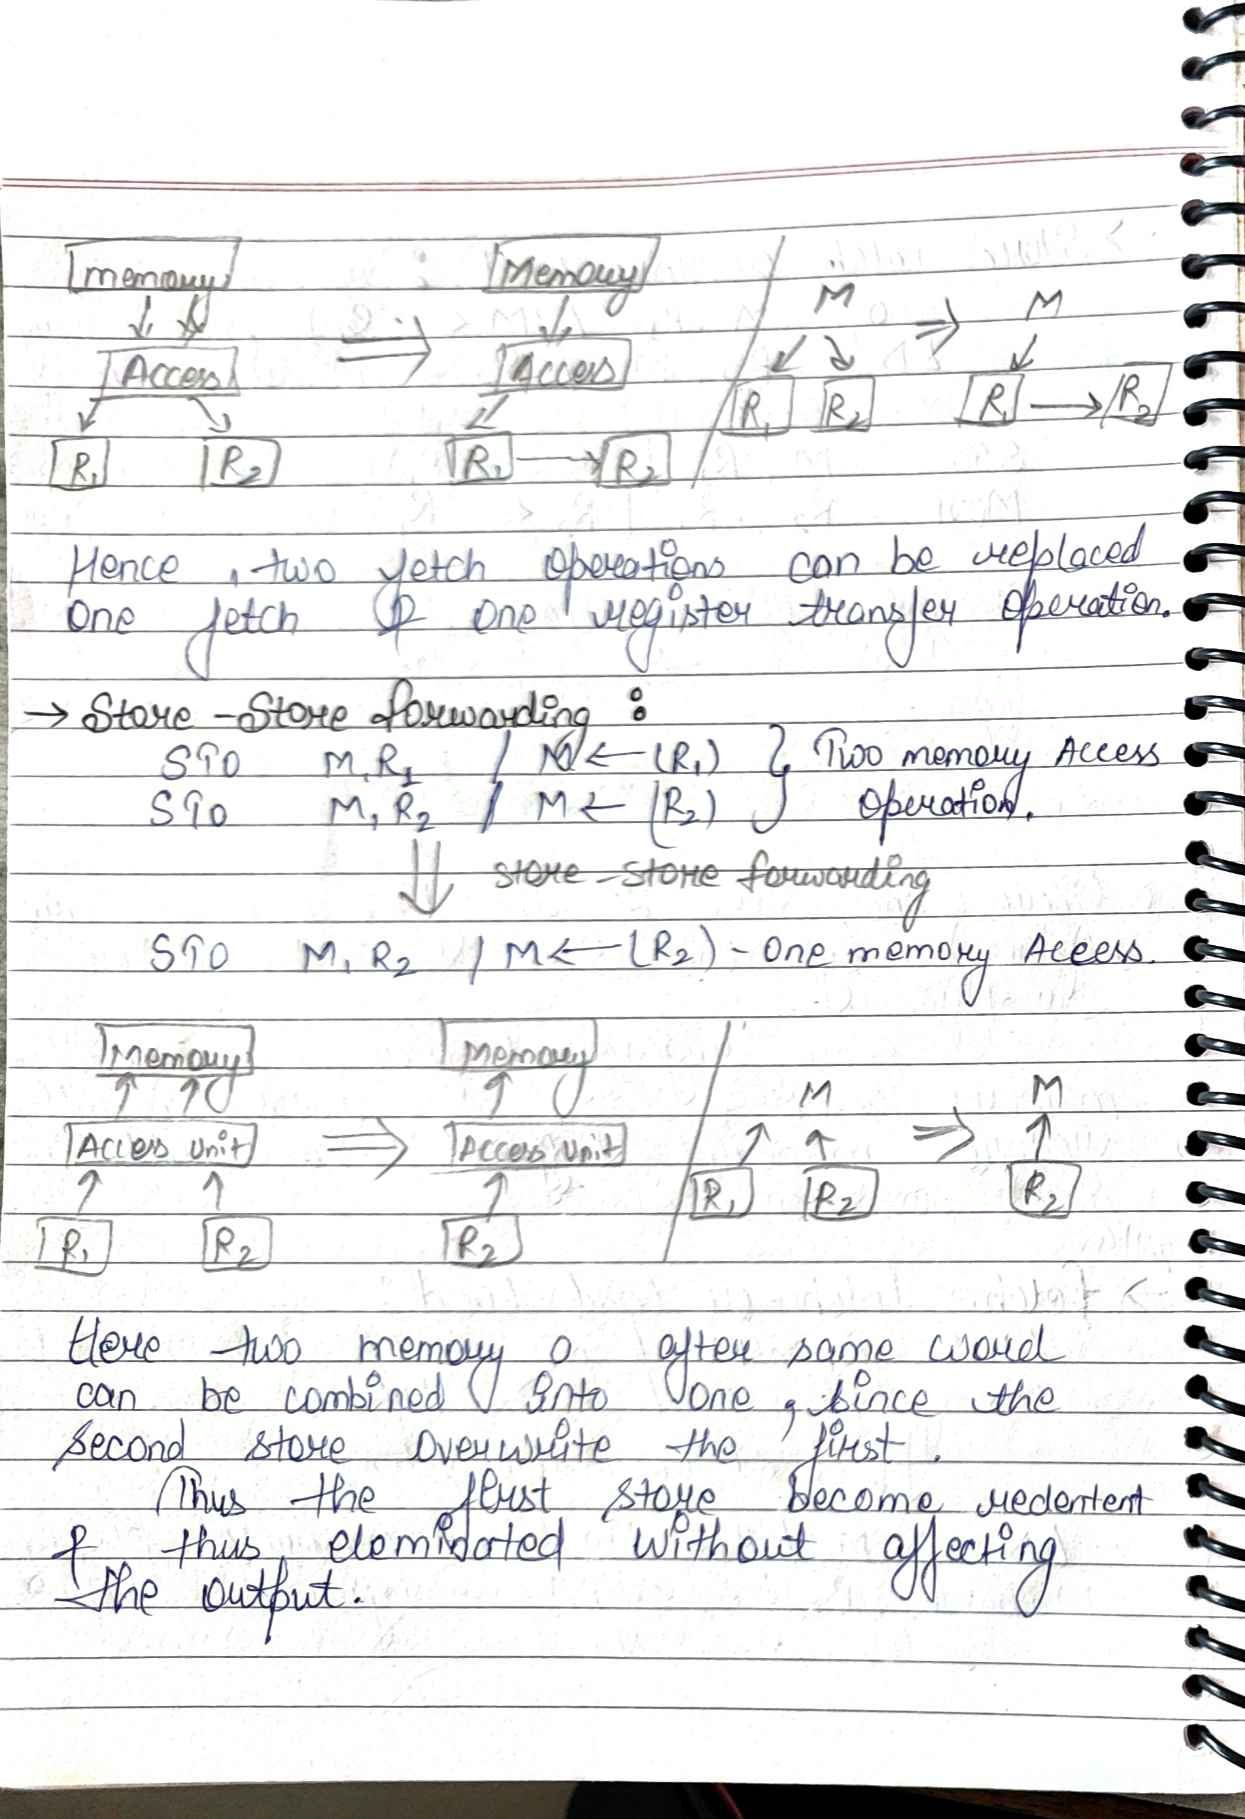 Memory Memory M M
Access Access
R1 R2 R1 R2 R1 R2 R1 R2
Hence, two fetch operations can be replaced
One fetch & one register transfer operation.
→ Store-Store forwarding :
STO M, R1 / M ← (R1) } Two memory Access
STO M, R2 / M ← (R2) Operation.
store-store forwarding
STO M, R2 / M ← (R2) - One memory Aceess.
Memory Memory
M M
Access Unit Access Unit
R1 R2 R2
R1 R2 R2
Here two memory o after same word
can be combined into one, since the
second store overwrite the first.
Thus the first store become redentent
& thus, elemidated without affecting
the output.